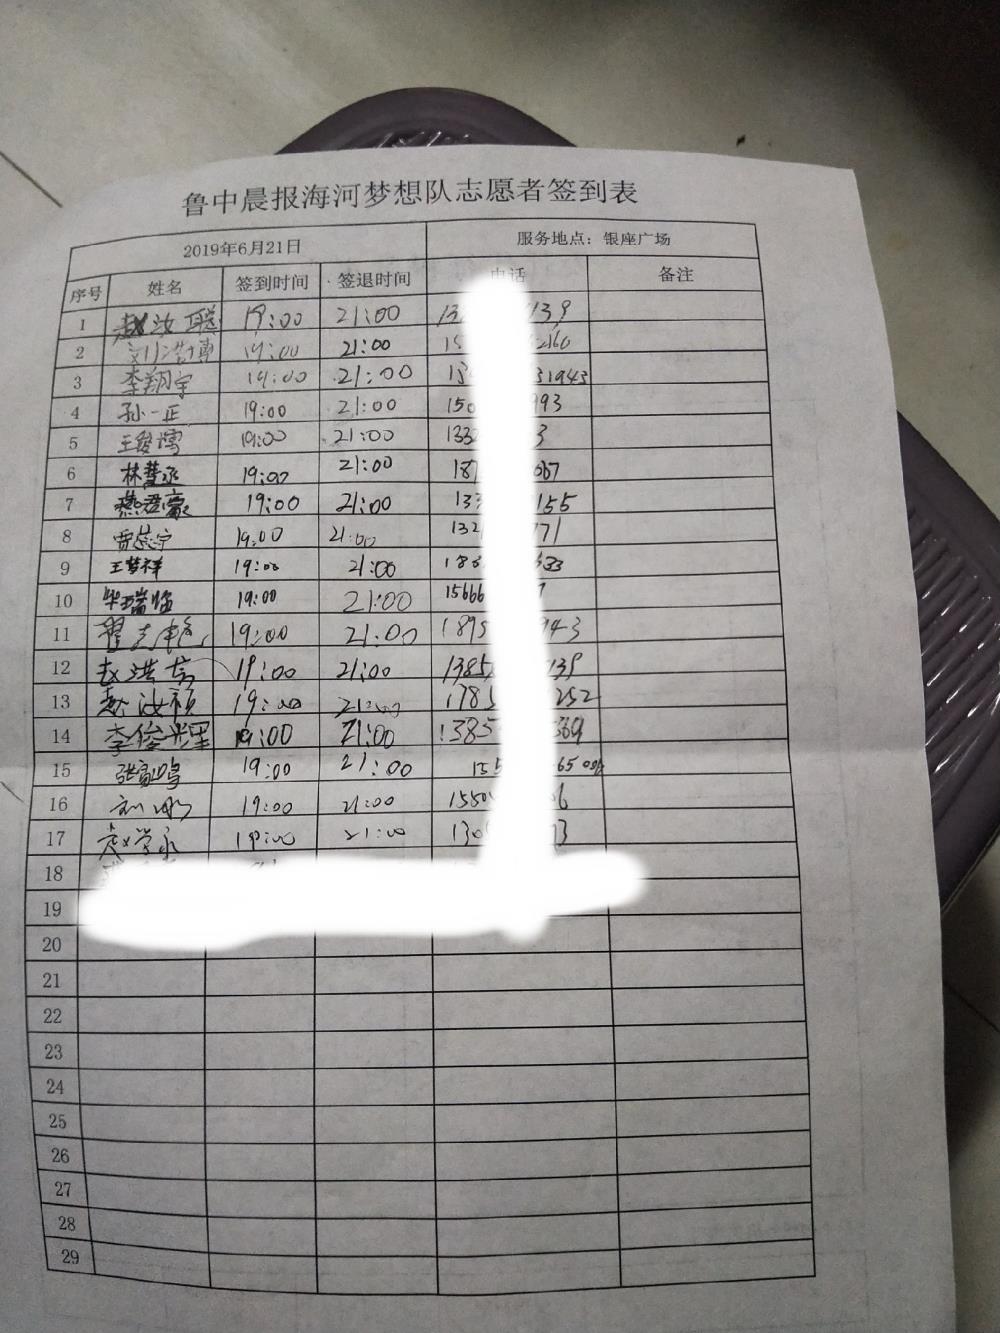 鲁中晨报海河梦想队志愿者签到表
2019年6月21日 服务地点：银座广场
序号 姓名 签到时间 签退时间 电话 备注
1 赵汝聪 19:00 21:00 139
2 刘浩博 19:00 21:00 160
3 李翔宇 19:00 21:00 31943
4 孙一正 19:00 21:00 150 993
5 19:00 21:00 133 3
6 林慧丞 19:00 21:00 187 667
7 燕君豪 19:00 21:00 133 155
8 19:00 21:00 132 771
9 王梦祥 19:00 21:00 633
10 毕瑞临 19:00 21:00 15666 7
11 19:00 21:00 1895 943
12 赵洪 19:00 21:00 1385 139
13 赵汝 19:00 21:00 1785 252
14 李俊辉 19:00 21:00 1385 369
15 张家鸣 19:00 21:00 155 65
16 刘 19:00 21:00 1550 6
17 赵学永 19:00 21:00 130 73
18
19
20
21
22
23
24
25
26
27
28
29